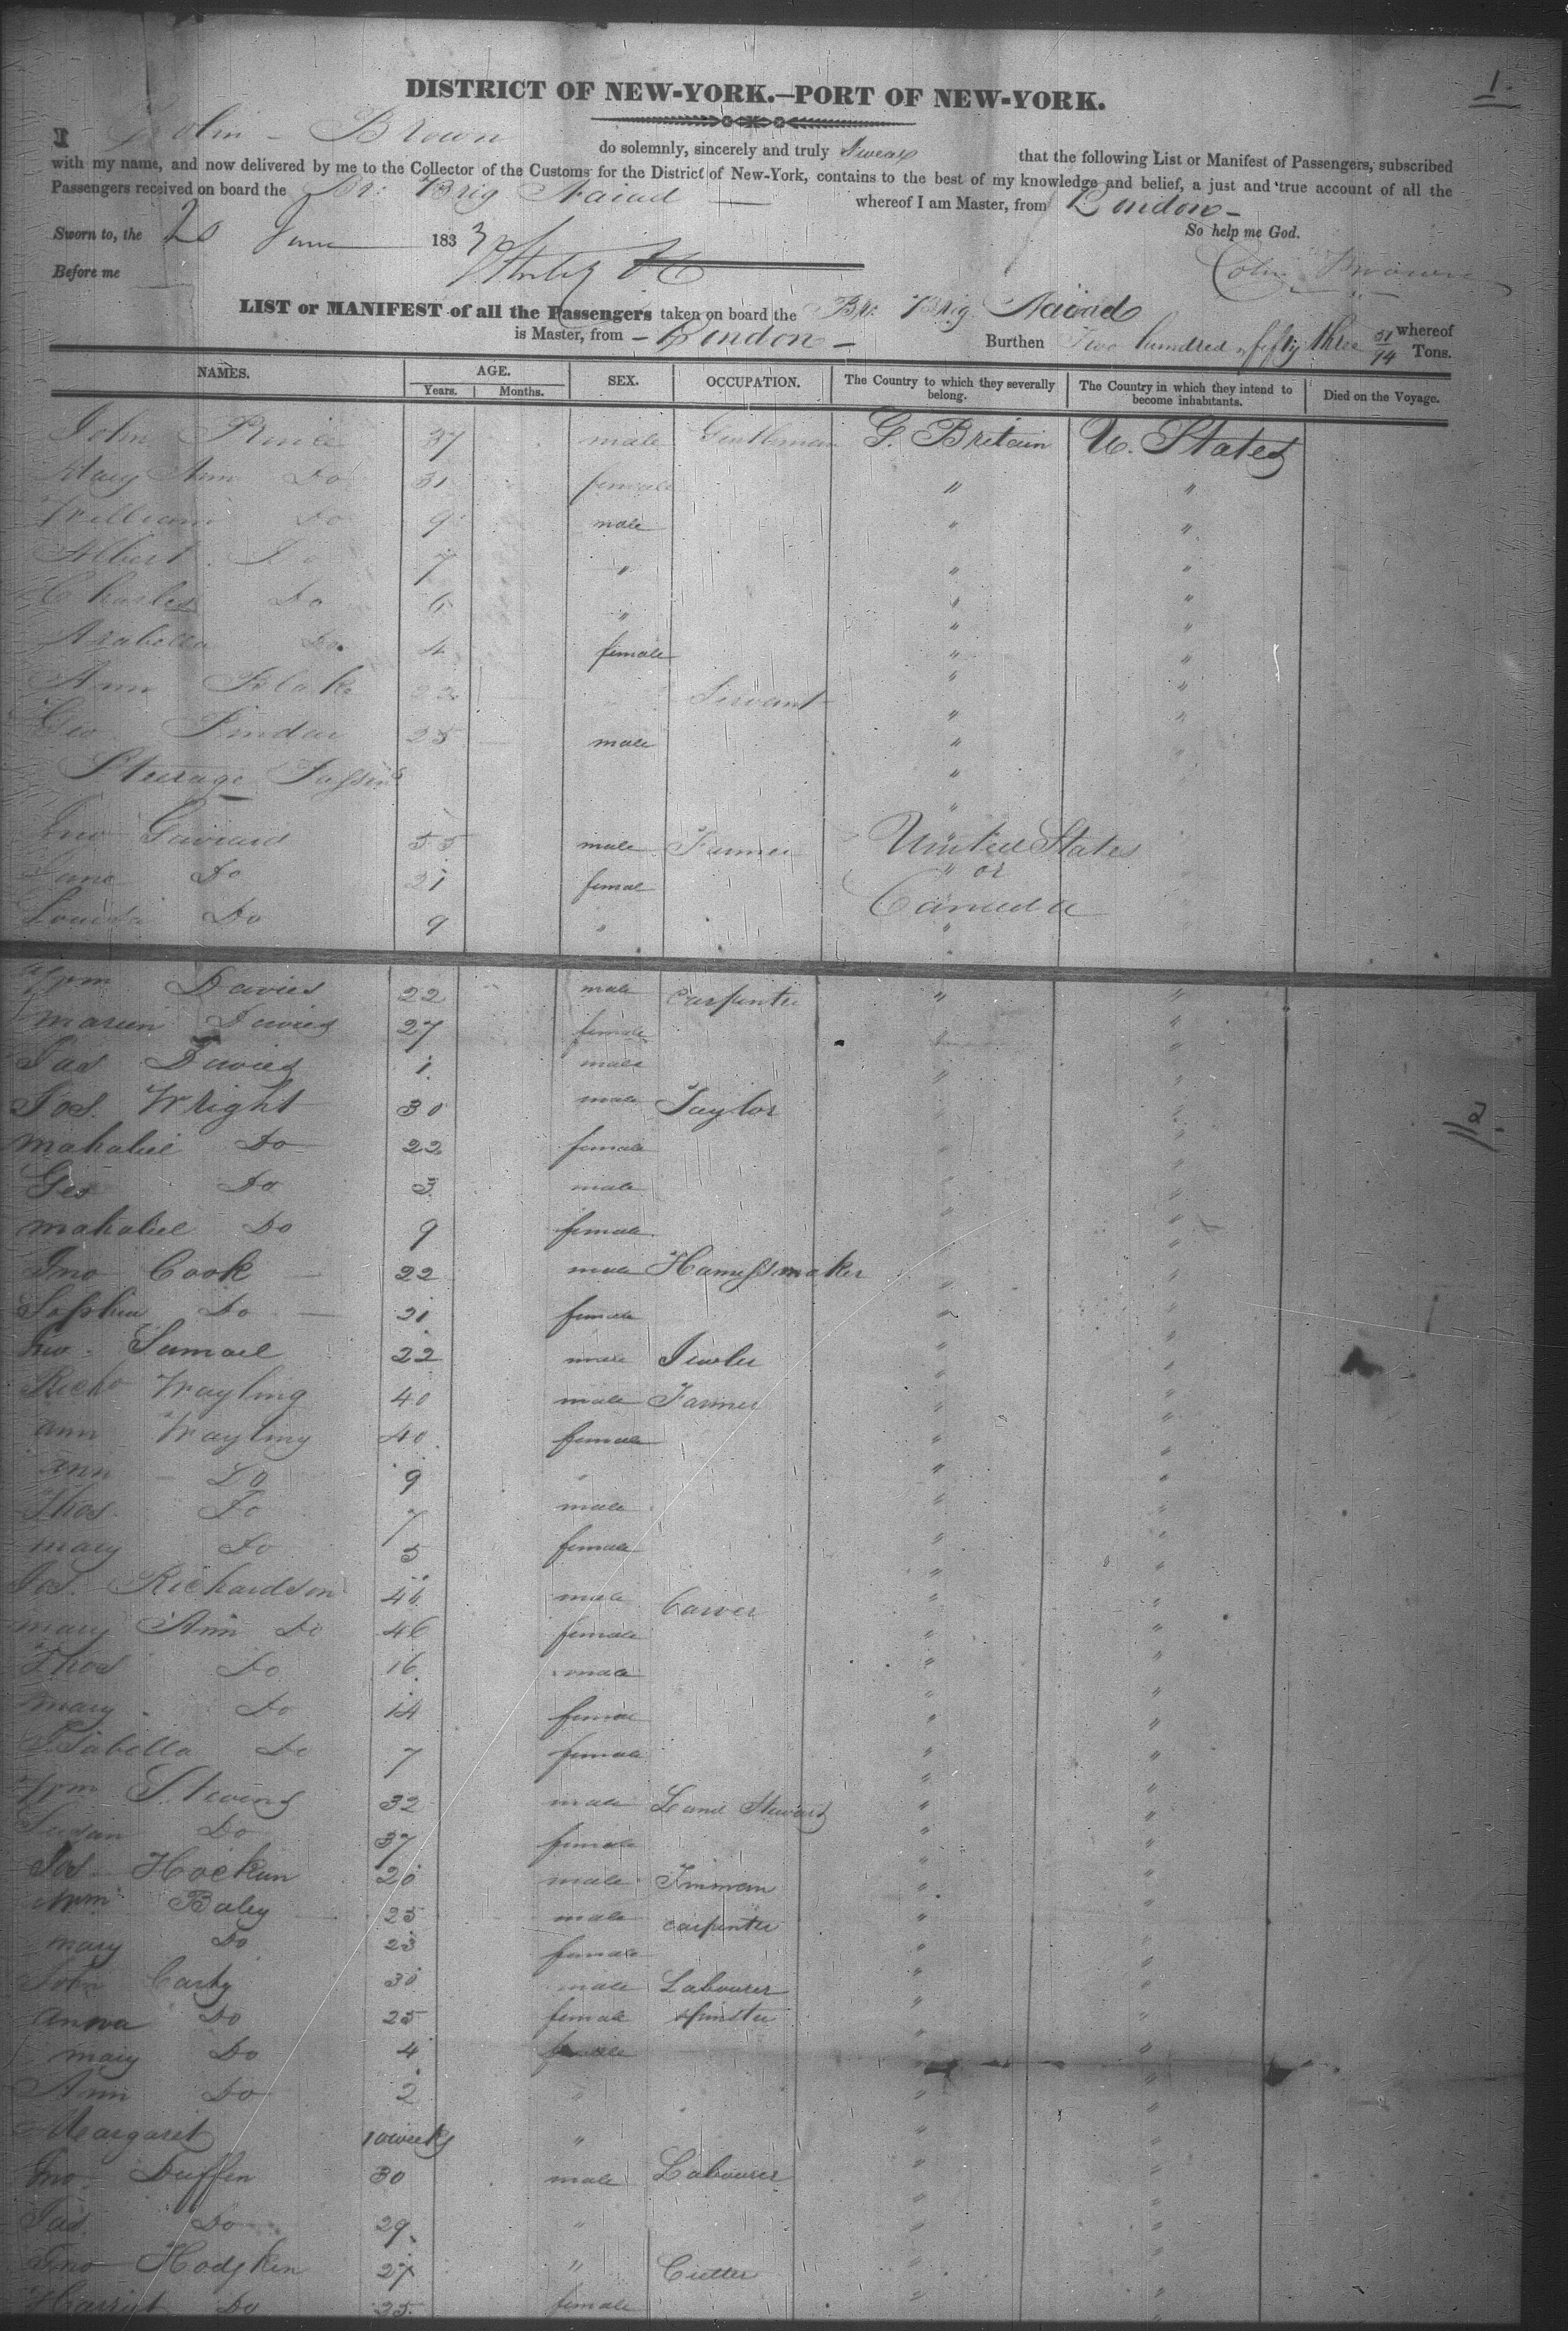 1.
DISTRICT OF NEW-YORK.—PORT OF NEW-YORK.
I Colin Brown do solemnly, sincerely and truly Swear that the following List or Manifest of Passengers, subscribed
with my name, and now delivered by me to the Collector of the Customs for the District of New-York, contains to the best of my knowledge and belief, a just and true account of all the
Passengers received on board the Br: Brig Naiad whereof I am Master, from London
Sworn to, the 20 June 183 So help me God.
Before me Colin Brown
LIST or MANIFEST of all the Passengers taken on board the Br: Brig Naiad whereof
is Master, from London Burthen Two hundred & fifty three 51/94 Tons.
NAMES. AGE. SEX. OCCUPATION. The Country to which they severally belong. The Country in which they intend to become inhabitants. Died on the Voyage.
Years. Months.
John 37 male Gentleman G. Britain U. States
Mary Ann Do 31 female " "
William Do 9 male " "
Albert Do 7 " " "
Charles Do 6 " " "
Arabella Do 4 female " "
Ann 22 " Servant " "
Geo 25 male " "
Steerage Passrs
55 male Farmer United States
Jane Do 21 female " or
Louisa Do 9 " Canada
Wm Davies 22 male Carpenter " "
Davies 27 female " "
Jas Davies 1 male " "
Jos. Wright 30 male Taylor " "
2
Mahaliel Do 22 female " "
Geo Do 3 male " "
Mahaliel Do 9 female " "
Jno Cook 22 male Harnessmaker " "
Sophia Do 21 female " "
Samuel 22 male Jewler " "
Richd Wayling 40 male Farmer " "
Ann Wayling 40 female " "
Ann Do 9 " " "
Thos. Do 7 male " "
Mary Do 5 female " "
Jos. Richardson 46 male Carver " "
Mary Ann Do 46 female " "
Thos Do 16 male " "
Mary Do 14 female " "
Isabella Do 7 female " "
Wm Stevens 32 male Land Steward " "
Susan Do 37 female " "
Jos Hockun 20 male " "
Wm Baley 25 male carpenter " "
Mary Do 23 female " "
John Carty 30 male Labourer " "
Anna Do 25 female spinster " "
Mary Do 4 female " "
Ann Do 2 " " "
Margaret 10 weeks " " "
Jno Duffin 30 male Labourer " "
Jas Do 29 " " "
Jno Hodgkin 27 " Cutter " "
Harriet Do 25 female " "